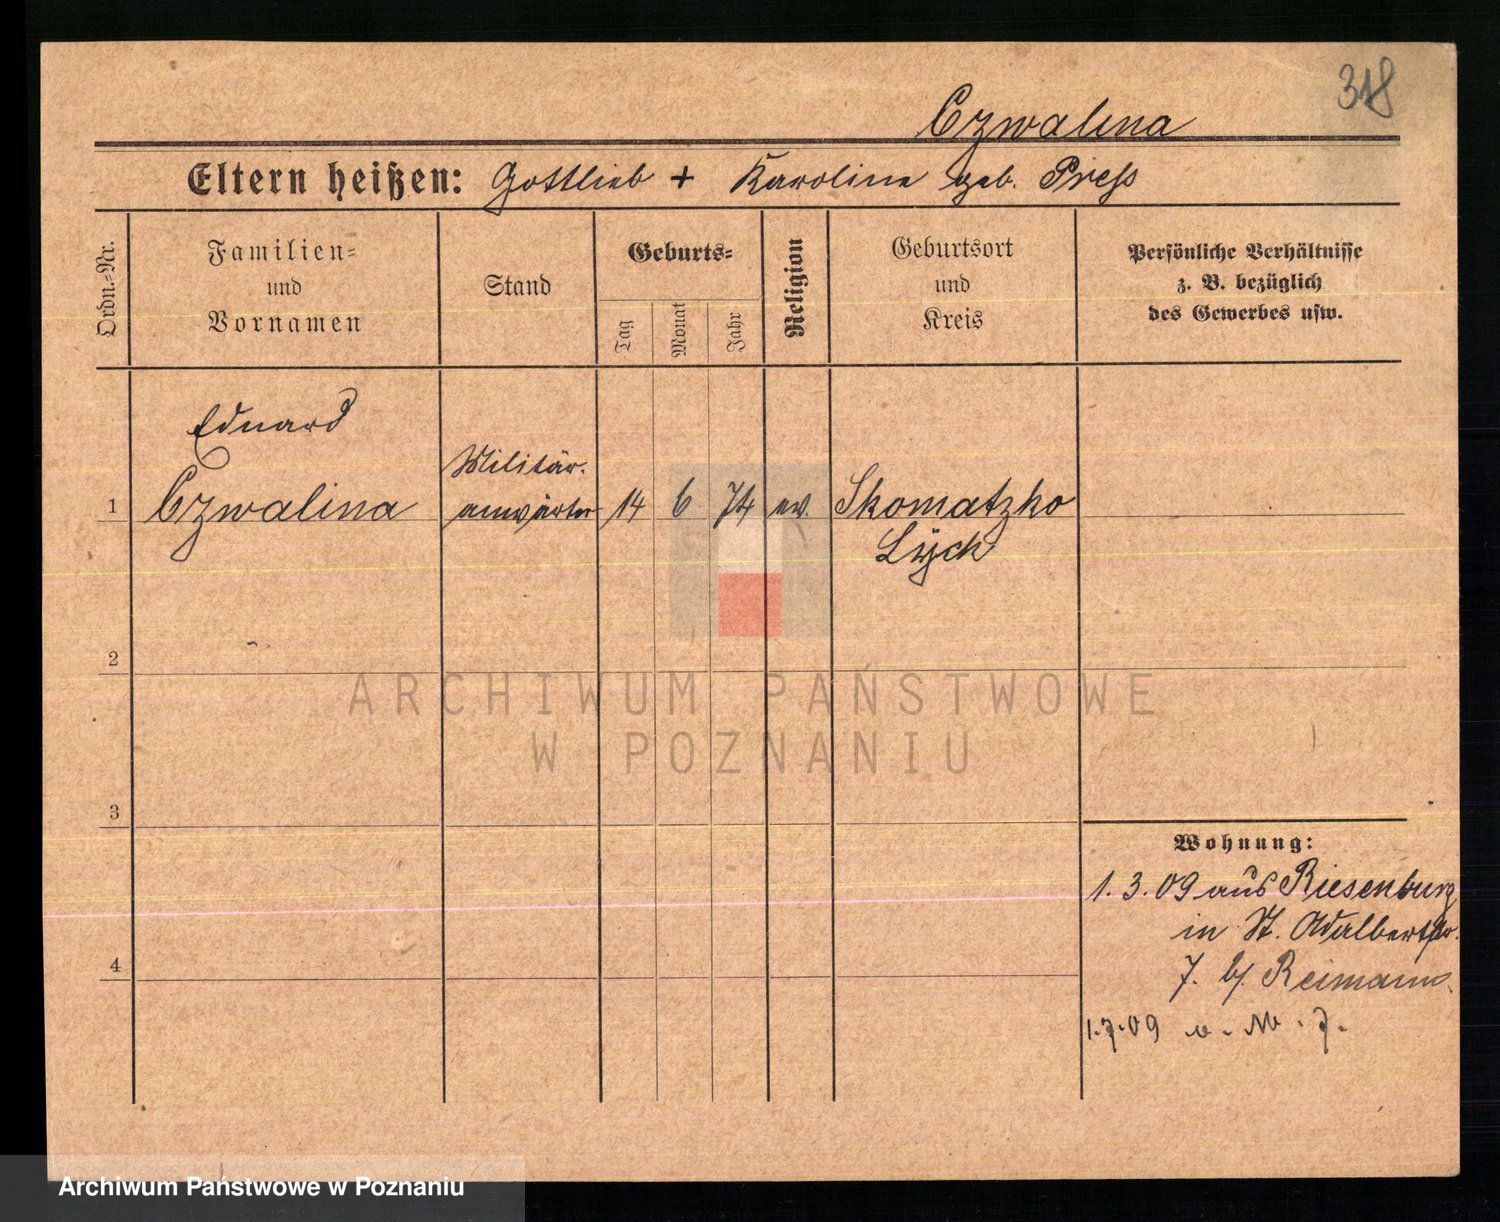 318
Czwalina
Eltern heißen: Gottlieb + Karoline geb. Preß
Ordn.=Nr.
Familien=
und
Vornamen
Stand
Geburts=
Tag
Monat
Jahr
Religion
Geburtsort
und
Kreis
Persönliche Verhältnisse
z. B. bezüglich
des Gewerbes usw.
Eduard
1 Czwalina
Militär.
anwärter
14 6 74 ev.
Skomatzko
Lyck
2
3
4
Wohnung:
1. 3. 09 aus Riesenburg
in St. Adalbertstr.
7. b/ Reimann.
1.7.09
ARCHIWUM PAŃSTWOWE
W POZNANIU
Archiwum Państwowe w Poznaniu